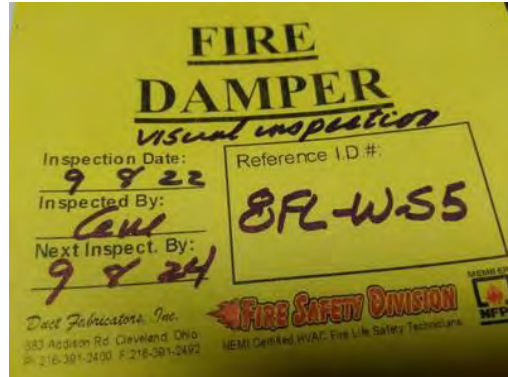 FIRE
DAMPER
visual inspection
Inspection Date:
9 8 22
Inspected By:
Next Inspect. By:
9 8 24
Reference I.D.#:
8FL-W-S5
Duct Fabricators, Inc.
883 Addison Rd. Cleveland, Ohio
P: 216-391-2400 F: 216-391-2492
FIRE SAFETY DIVISION
NEMI Certified, HVAC Fire Life Safety Technicians
MEMBER
NFP